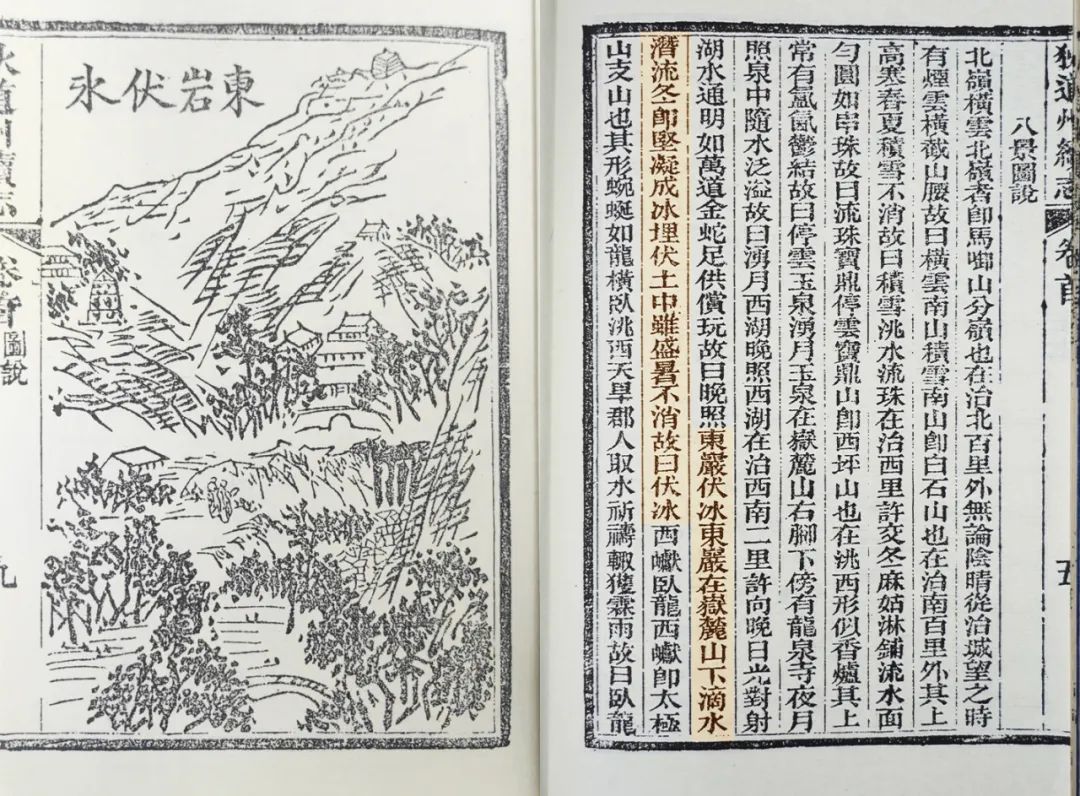 狄道州續志
卷首
五
八景圖說
北嶺橫雲北嶺者卽馬啣山分嶺也在治北百里外無論陰晴從治城望之時
有煙雲橫截山腰故曰橫雲南山積雪南山卽白石山也在治南百里外其上
高寒春夏積雪不消故曰積雪洮水流珠在治西里許交冬麻姑淋鋪流水面
勻圓如串珠故曰流珠寶鼎停雲寶鼎山卽西坪山也在洮西形似香爐其上
常有氤氳鬱結故曰停雲玉泉湧月玉泉在嶽麓山右腳下傍有龍泉寺夜月
照泉中隨水泛溢故曰湧月西湖晚照西湖在治西南二里許向晚日光對射
湖水通明如萬道金蛇足供償玩故曰晚照東巖伏冰東巖在嶽麓山下滴水
潛流冬卽堅凝成冰埋伏土中雖盛暑不消故曰伏冰西巘臥龍西巘卽太極
山支山也其形蜿蜒如龍橫臥洮西天旱郡人取水祈禱輙獲霖雨故曰臥龍
東岩伏氷
狄道州續志
卷首
圖說
九